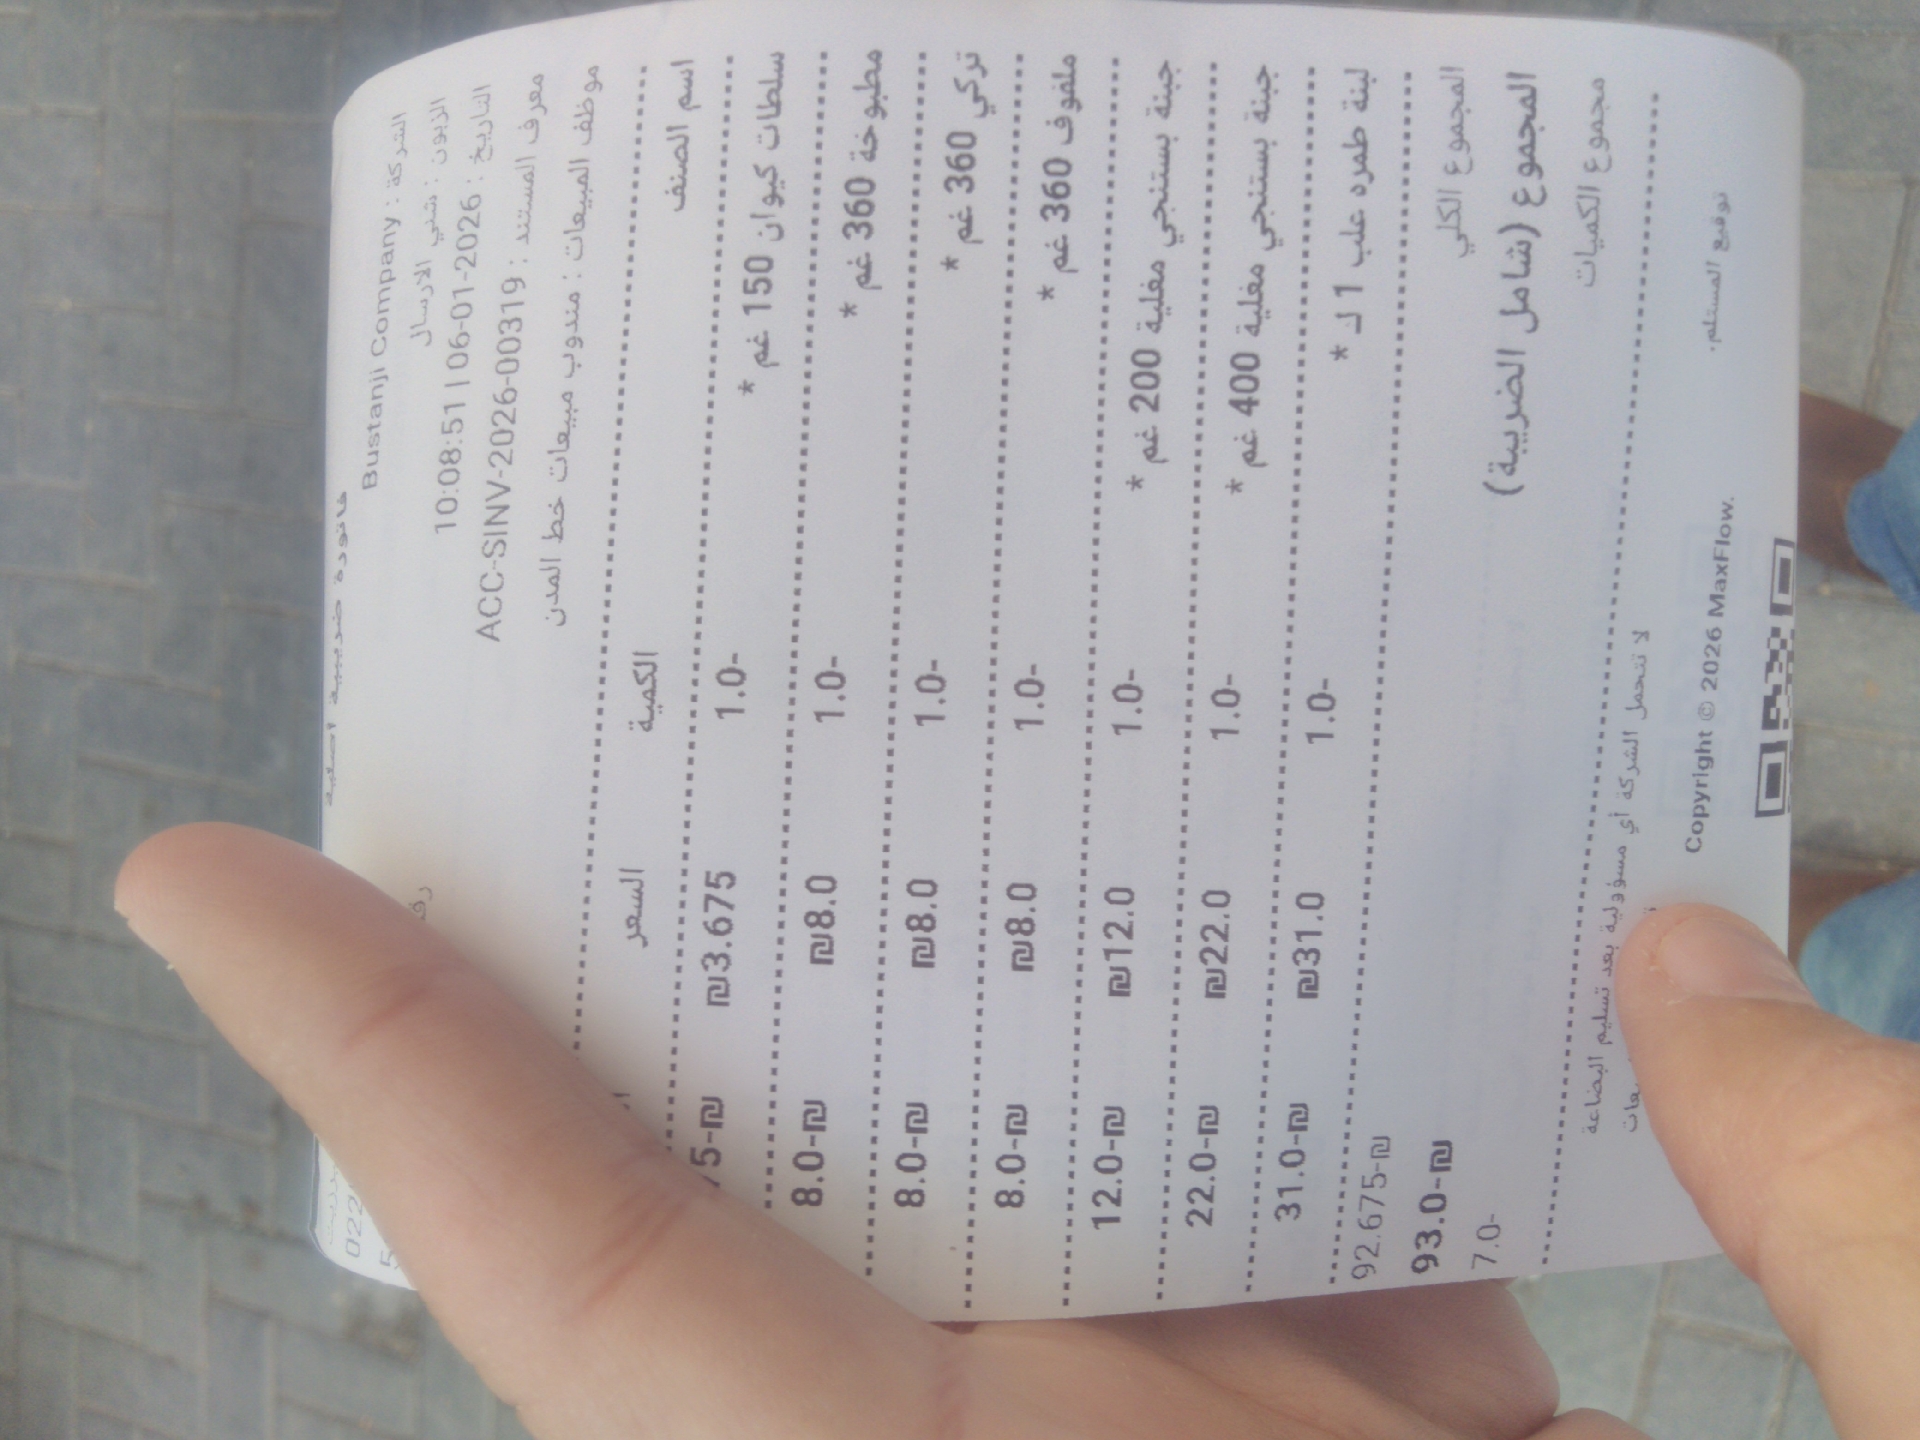 فاتورة ضريبية أصلية
الشركة : Bustanji Company
الزبون : شني الارسال
التاريخ : 2026-01-06 | 10:08:51
معرف المستند : ACC-SINV-2026-00319
موظف المبيعات : مندوب مبيعات خط المدن
اسم الصنف الكمية السعر
سلطات كيوان 150 غم * 1.0- ₪3.675
مطبوخة 360 غم * 1.0- ₪8.0 8.0-₪
تركي 360 غم * 1.0- ₪8.0 8.0-₪
ملفوف 360 غم * 1.0- ₪8.0 8.0-₪
جبنة بستنجي مغلية 200 غم * 1.0- ₪12.0 12.0-₪
جبنة بستنجي مغلية 400 غم * 1.0- ₪22.0 22.0-₪
لبنة طمره علب 1 ك * 1.0- ₪31.0 31.0-₪
المجموع الكلي 92.675-₪
المجموع (شامل الضريبة) 93.0-₪
مجموع الكميات 7.0-
لا تتحمل الشركة أي مسؤولية بعد تسليم البضاعة
توقيع المستلم.
Copyright © 2026 MaxFlow.